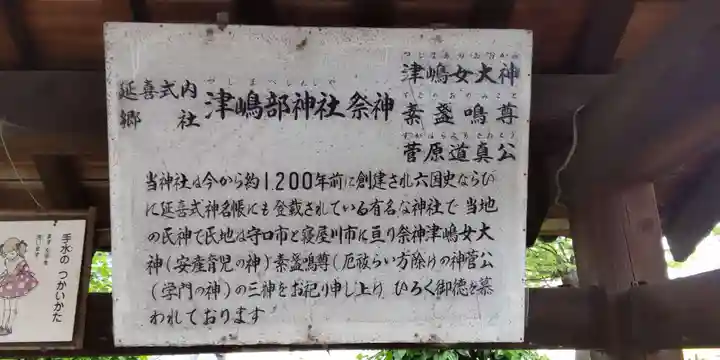 延喜式内
郷社
津嶋部神社祭神
津嶋女大神
素盞鳴尊
すがはらみちざねこう
菅原道真公
当神社は今から約1,200年前に創建され六国史ならび
に延喜式神名帳にも登載されている有名な神社で当地
の氏神で氏地は守口市と寝屋川市に亘り祭神津嶋女大
神(安産育児の神)素盞鳴尊(厄祓らい方除けの神菅公
(学門の神)の三神をお祀り申し上げひろく御徳を慕
われております
手水のつかいかた